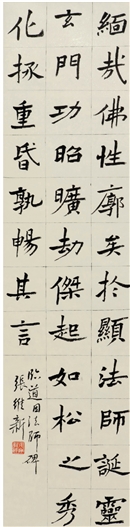 緬哉佛性廓矣於顯法師誕靈
玄門功昭曠劫傑起如松之秀
化拯重昏孰暢其言
臨道因法師碑
張維新